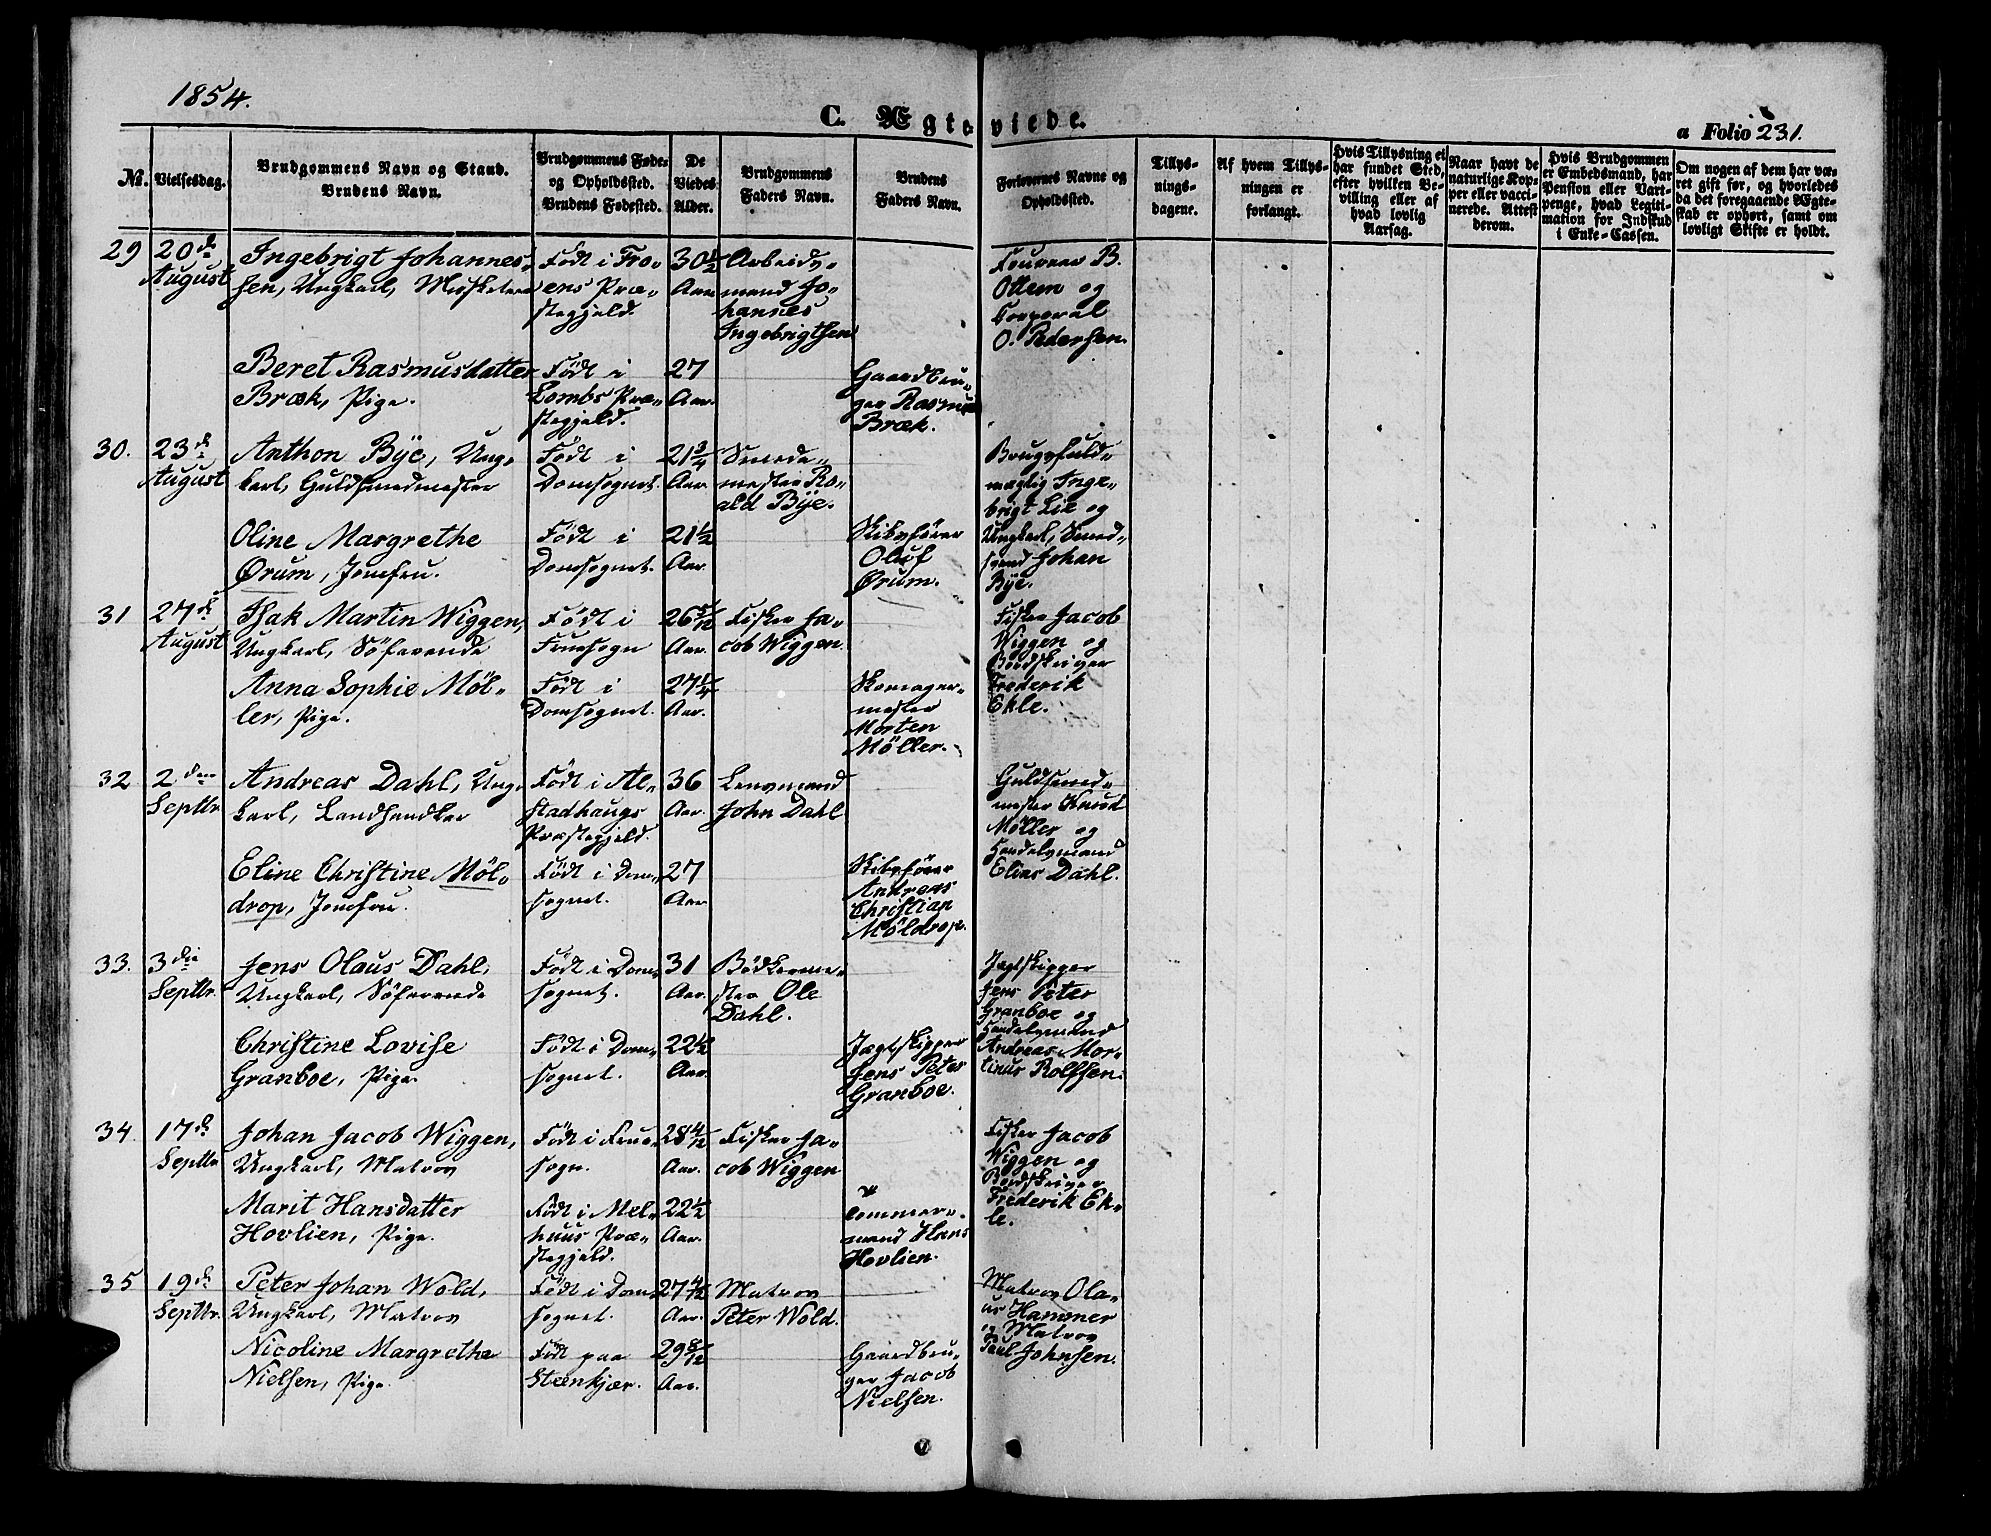 1854.
C. Ægteviede.
a Folio 231.
No. Vielsesdag. Brudgommens Navn og Stand. Brudens Navn. Brudgommens Føde- og Opholdssted. Brudens Fødested. De Viedes Alder. Brudgommens Faders Navn. Brudens Faders Navn. Forlovernes Navne og Opholdssted. Tillysningsdagene. Af hvem Tillysningen er forlangt. Hvis Tillysning ei har fundet Sted, efter hvilken Bevilling eller af hvad lovlig Aarsag. Naar havt de naturlige Kopper eller vaccinerede. Attest derom. Hvis Brudgommen er Embedsmand, har Pension eller Vartpenge, hvad Legitimation for Indskud i Enke-Cassen. Om nogen af dem har været gift før, og hvorledes da det foregaaende Ægteskab er ophørt, samt om lovligt Skifte er holdt.
29 20de August Ingebrigt Johannessen, Ungkarl, Musketeer Født i Froens Præstegjeld. 30 1/2 Aar Arbeidsmand Johannes Ingebrigtsen Foureer B. Ottem og Corporal O. Pedersen.
Beret Rasmusdatter Bræk, Pige. Født i Lombs Præstegjeld. 27 Aar. Gaardbruger Rasmus Bræk.
30. 23de August Anthon Bÿe, Ungkarl, Guldsmedmester Født i Domsognet. 21 3/4 Aar. Smedemester Roald Bÿe. Brugsfuldmægtig Ingebrigt Lie og Ungkarl, Smedsvend Johan Bÿe.
Oline Margrethe Ørum, Jomfru. Født i Domsognet. 21 1/2 Aar. Skibsfører Oluf Ørum.
31 27de August Isak Martin Wiggen, Ungkarl, Söfarende Født i Fruesogn 26 5/12 Aar. Fisker Jacob Wiggen. Fisker Jacob Wiggen og Bordskriver Frederik Ekle.
Anna Sophie Möller, Pige. Født i Domsognet. 27 1/4 Aar. Skomagermester Morten Möller.
32 2den Septbr Andreas Dahl, Ungkarl, Landhandler Født i Alstadhaugs Præstegjeld. 36 Aar. Lensmand John Dahl Guldsmedmester Knud Møller og Handelsmand Elias Dahl.
Eline Christine Möldrop, Jomfru. Født i Domsognet. 27 Aar Skibsfører Andreas Christian Möldrop.
33. 3die Septbr. Jens Olaus Dahl, Ungkarl, Söfarende Födt i Domsognet. 31 Aar. Bödkermester Ole Dahl. Jagtskipper Jens Peter Granboe og Handelsmand Andreas Martinus Rolffsen.
Christine Lovise Granboe, Pige. Födt i Domsognet. 22 1/2 Aar. Jagtskipper Jens Peter Granboe.
34. 17de Septbr Johan Jacob Wiggen, Ungkarl, Matros Födt i Fruesogn. 28 4/12 Aar. Fisker Jacob Wiggen Fisker Jacob Wiggen og Bordskriver Frederik Ekle.
Marit Hansdatter Hovlien, Pige. Födt i Melhuus Præstegjeld. 22 1/2 Aar. Tömmermand Hans Hovlien.
35 19de Septbr. Peter Johan Wold, Ungkarl, Matros Födt i Domsognet. 27 4/12 Aar. Matros Peter Wold. Matros Olaus Hammer og Matros Paul Johnsen.
Nicoline Margrethe Nielsen, Pige Födt paa Steenkjær. 29 8/12 Aar. Gaardbruger Jacob Nielsen.